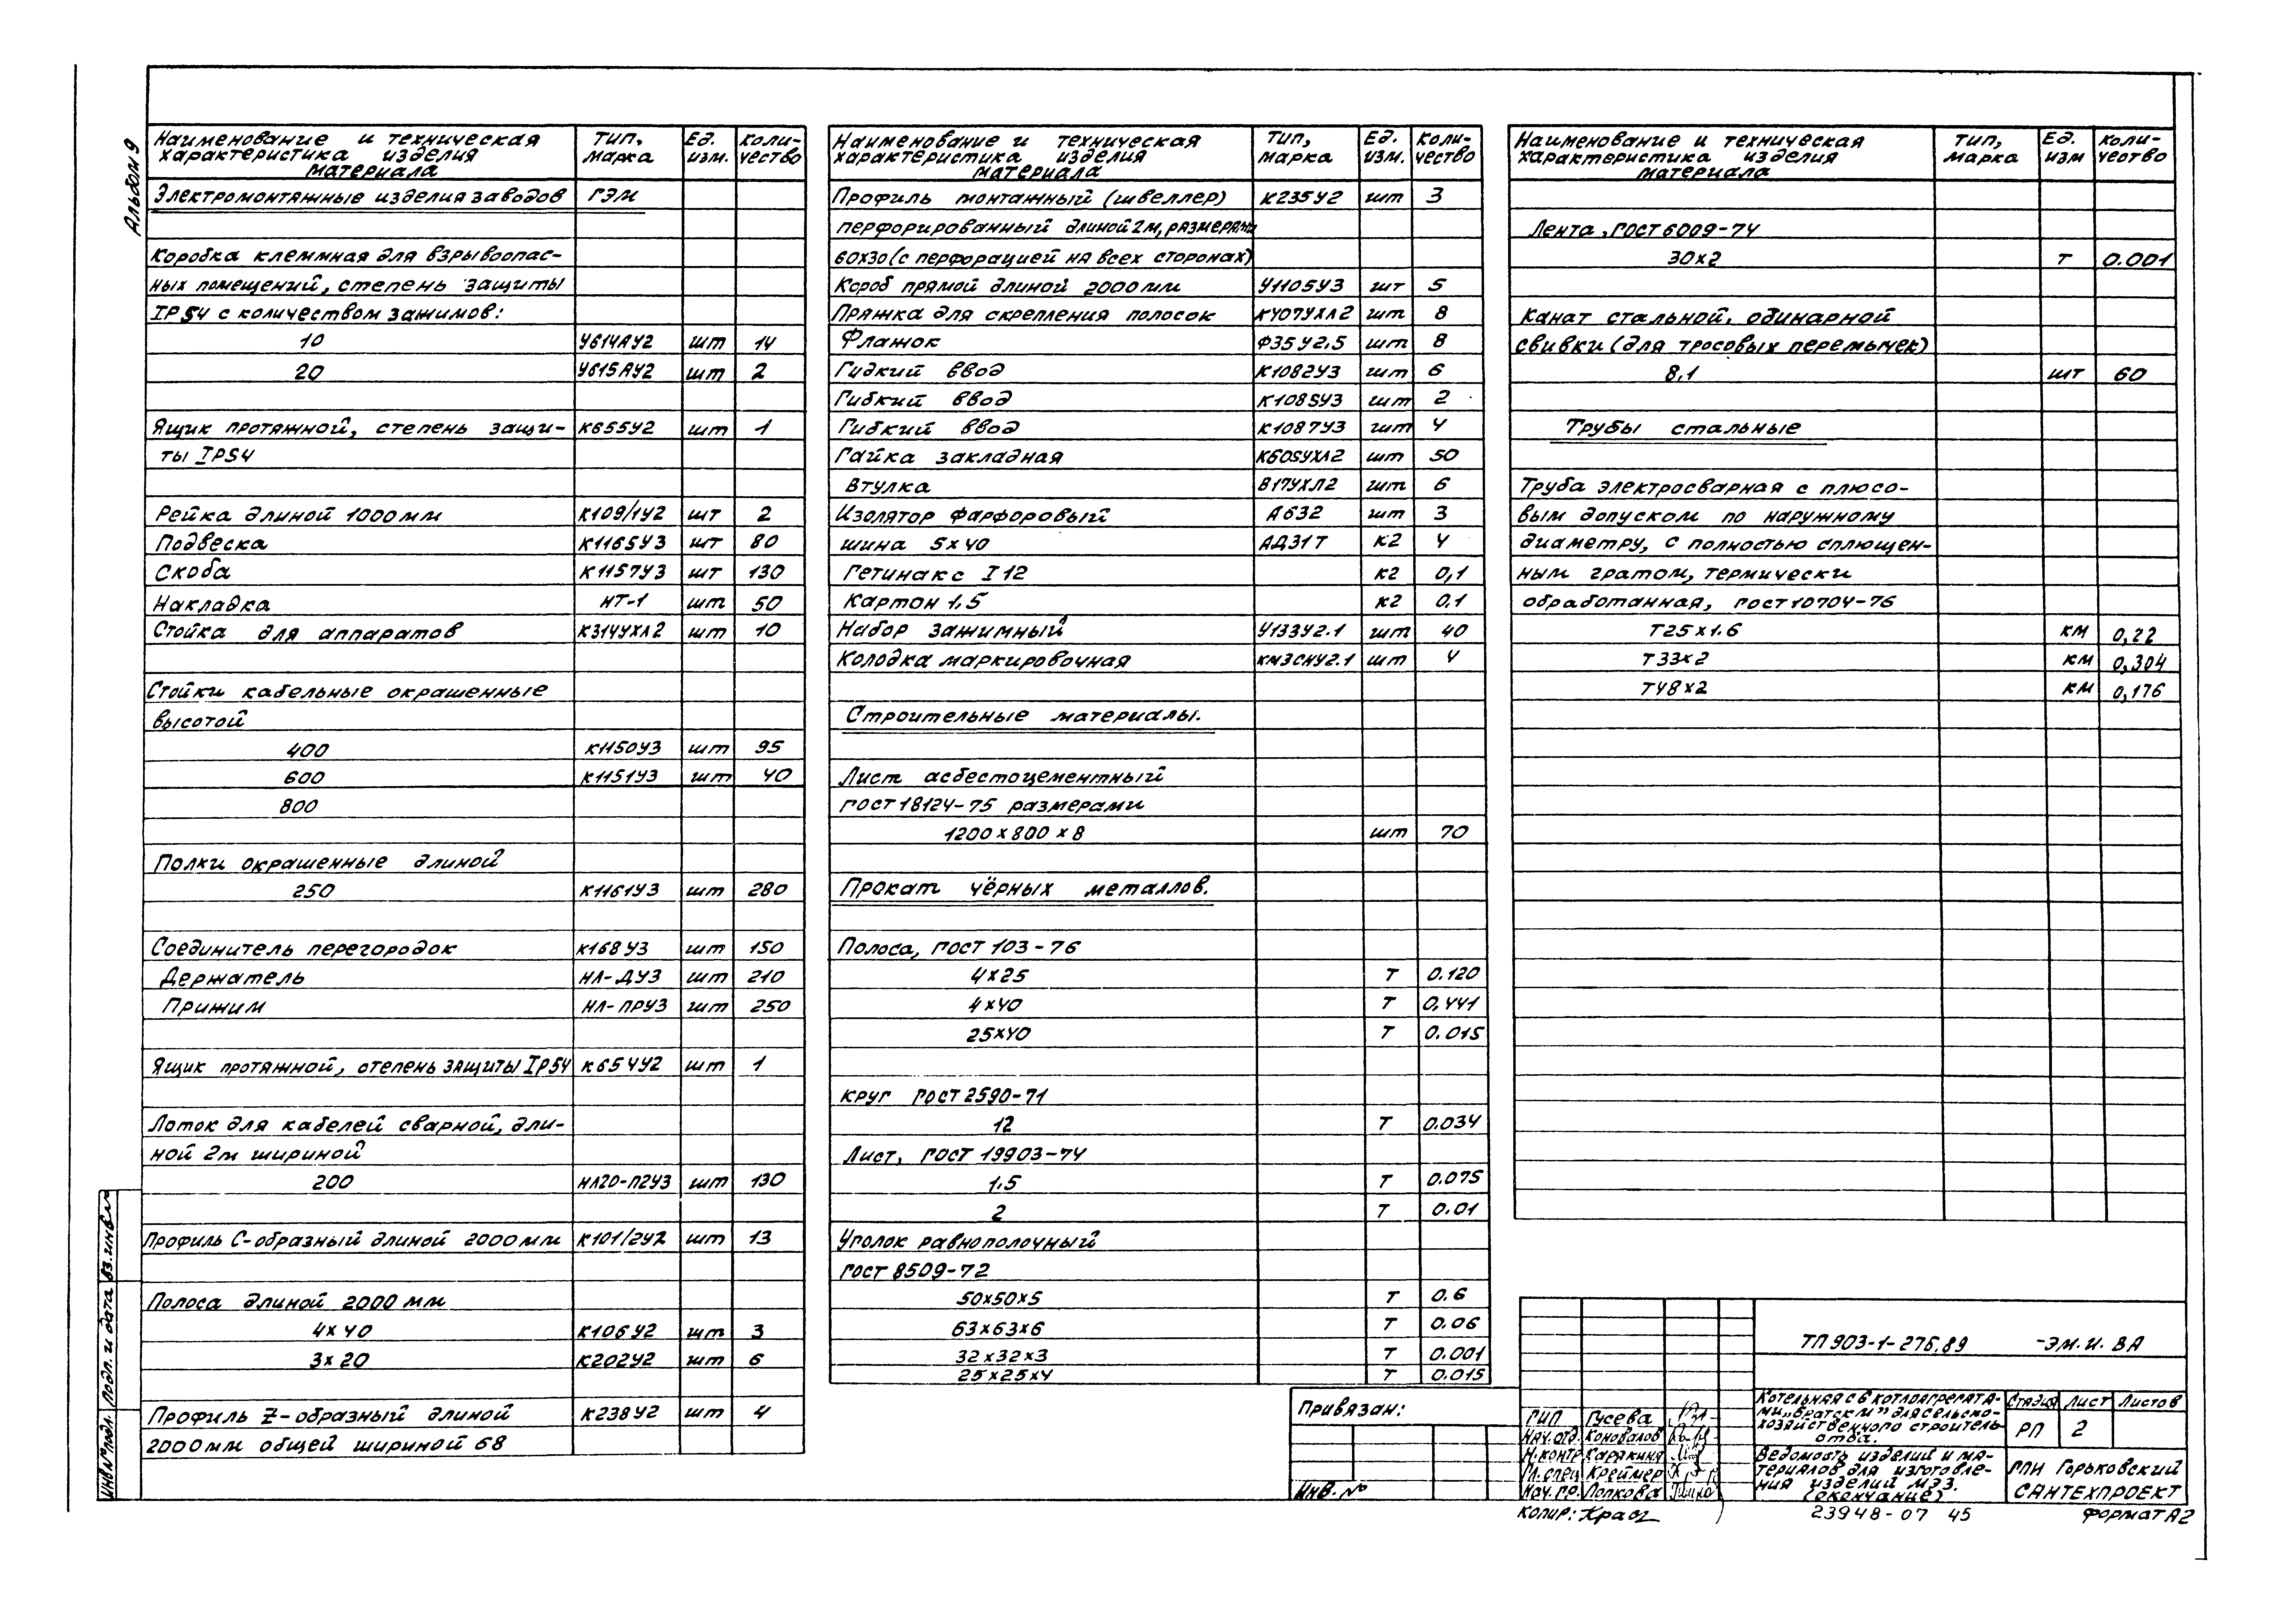 Альбом 9
Наименование и техническая характеристика изделия материала | Тип, марка | Ед. изм. | Коли-чество
Электромонтажные изделия заводов ГЭМ
Коробка клеммная для взрывоопас-
ных помещений, степень защиты
IP54 с количеством зажимов:
10 У614АУ2 шт 14
20 У615АУ2 шт 2
Ящик протяжной, степень защи- К655У2 шт 1
ты IP54
Рейка длиной 1000мм К109/1У2 шт 2
Подвеска К1165У3 шт 80
Скоба К1157У3 шт 130
Накладка НТ-1 шт 50
Стойка для аппаратов К314УХЛ2 шт 10
Стойки кабельные окрашенные
высотой
400 К1150У3 шт 95
600 К1151У3 шт 40
800
Полки окрашенные длиной
250 К1161У3 шт 280
Соединитель перегородок К168У3 шт 150
Держатель НЛ-ДУ3 шт 210
Прижим НЛ-ПРУ3 шт 250
Ящик протяжной, степень защиты IP54 К654У2 шт 1
Лоток для кабелей сварной, дли-
ной 2м шириной
200 НЛ20-П2У3 шт 130
Профиль С-образный длиной 2000мм К101/2У2 шт 13
Полоса длиной 2000мм
4х40 К106У2 шт 3
3х20 К202У2 шт 6
Профиль Z-образный длиной К238У2 шт 4
2000мм общей шириной 68
Наименование и техническая характеристика изделия материала | Тип, марка | Ед. изм. | Коли-чество
Профиль монтажный (швеллер) К235У2 шт 3
перфорированный длиной 2м, размерами
60х30 (с перфорацией на всех сторонах)
Короб прямой длиной 2000мм У1105У3 шт 5
Пряжка для скрепления полосок К407УХЛ2 шт 8
Флажок Ф35У2.5 шт 8
Гидкий ввод К1082У3 шт 6
Гибкий ввод К1085У3 шт 2
Гибкий ввод К1087У3 шт 4
Гайка закладная К605УХЛ2 шт 50
Втулка В17УХЛ2 шт 6
Изолятор фарфоровый А632 шт 3
шина 5х40 АД31Т кг 4
Гетинакс I 12 кг 0,1
Картон 1.5 кг 0.1
Набор зажимный У133У2.1 шт 40
Колодка маркировочная КМЗСНУ2.1 шт 4
Строительные материалы.
Лист асбестоцементный
ГОСТ 18124-75 размерами
1200х800х8 шт 70
Прокат чёрных металлов.
Полоса, ГОСТ 103-76
4х25 Т 0.120
4х40 Т 0,441
25х40 Т 0.015
круг ГОСТ 2590-71
12 Т 0.034
Лист, ГОСТ 19903-74
1.5 Т 0.075
2 Т 0.01
Уголок равнополочный
ГОСТ 8509-72
50х50х5 Т 0.6
63х63х6 Т 0.06
32х32х3 Т 0.001
25х25х4 Т 0.015
Наименование и техническая характеристика изделия материала | Тип, марка | Ед. изм | Коли-чество
Лента, ГОСТ 6009-74
30х2 Т 0.001
Канат стальной, одинарной
свивки (для тросовых перемычек)
8,1 шт 60
Трубы стальные
Труба электросварная с плюсо-
вым допуском по наружному
диаметру, с полностью сплющен-
ным гратом, термически
обработанная, ГОСТ 10704-76
Т25х1.6 км 0,22
Т33х2 км 0,304
Т48х2 км 0,176
ТП 903-1-276.89 -ЭМ.И. ВА
Котельная с 6 котлоагрегата-
ми „Братск М" для сельско-
хозяйственного строитель-
ства.
Стадия Лист Листов
РП 2
Ведомость изделий и ма-
териалов для изготовле-
ния изделий МЭЗ.
(окончание)
ГПИ Горьковский
САНТЕХПРОЕКТ
Привязан:
Инв. №
ГИП Гусева
Нач. отд. Коновалов
Н. контр Карякина
Гл. спец Креймер
Нач. гр. Лопкова
копир:
23948-07 45
Формат А2
Инв № подл. Подп. и дата Вз. инв №